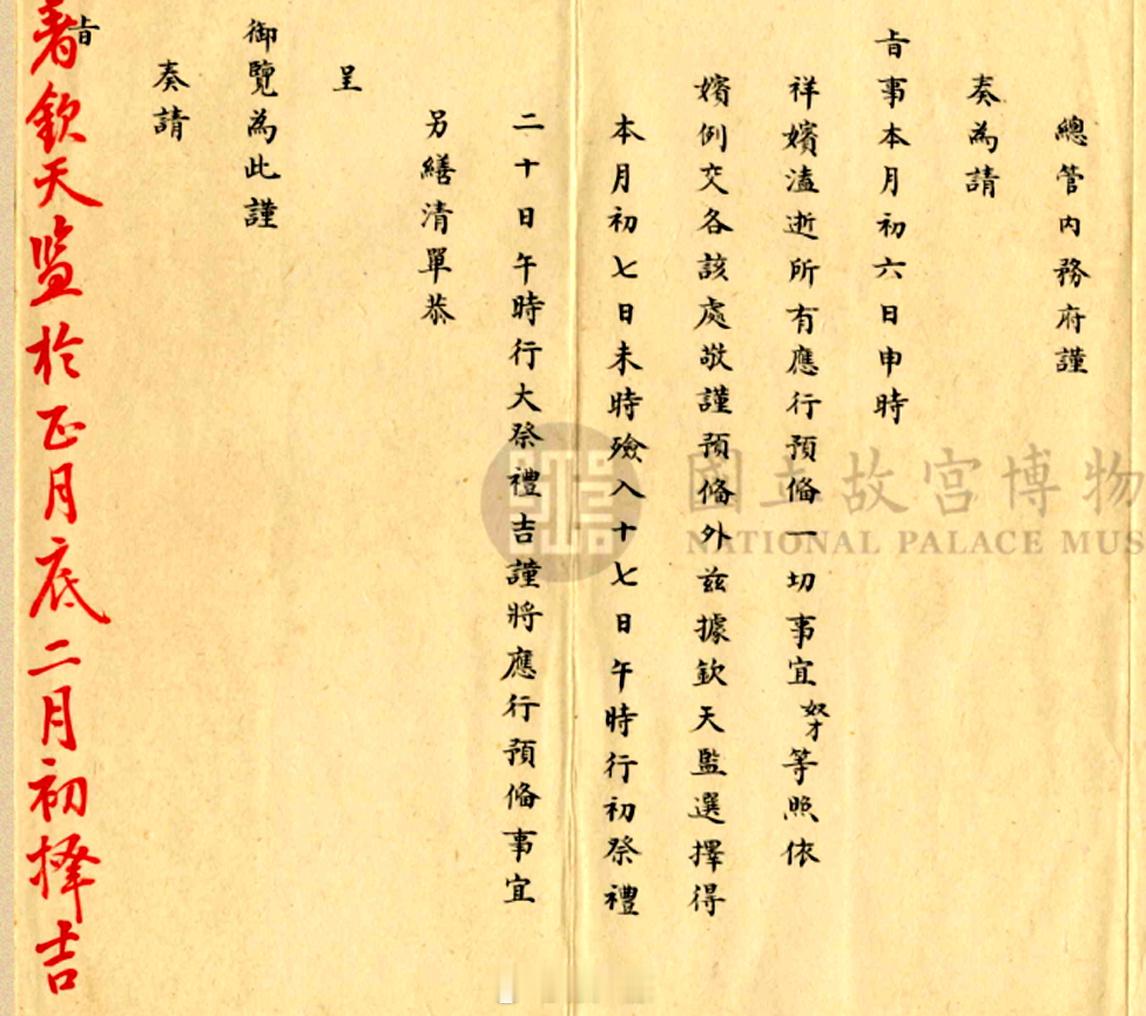 總管内務府謹
奏為請
旨事本月初六日申時
祥嬪溘逝所有應行預俻一切事宜奴才等照依
嬪例交各該處敬謹預俻外兹據欽天監選擇得
本月初七日未時殮入十七日午時行初祭禮
二十日午時行大祭禮吉謹將應行預俻事宜
另繕清單恭
呈
御覽為此謹
奏請
旨
著欽天监於正月底二月初擇吉
國立故宮博物
NATIONAL PALACE MUS